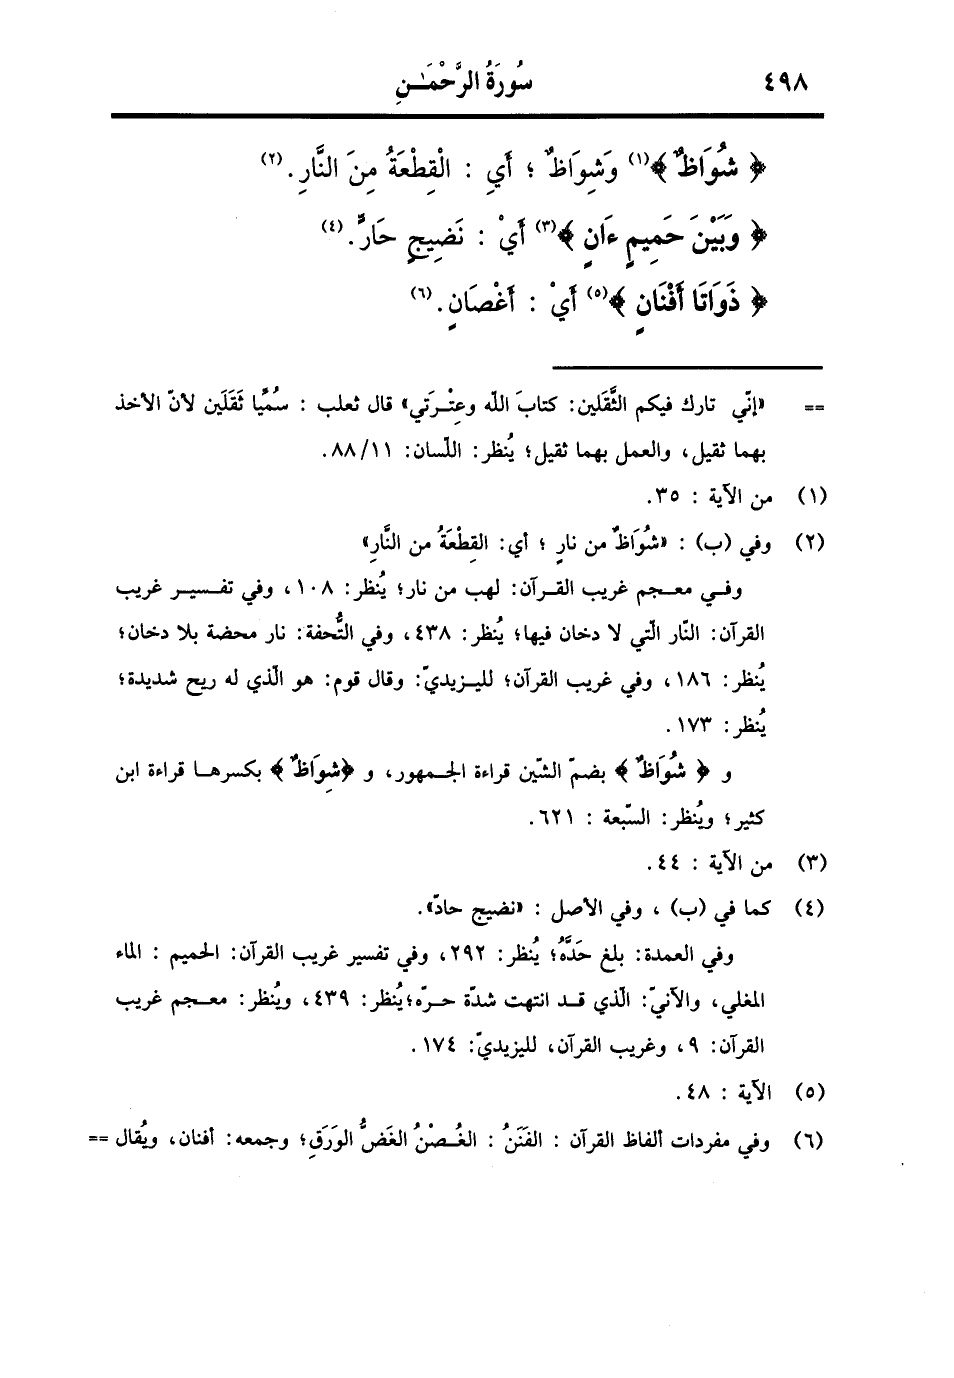 ٤٩٨ سُورَةُ الرَّحْمَـٰـنِ
﴿ شُوَاظٌ ﴾(١) وَشِوَاظٌ ؛ أَيِ : الْقِطْعَةُ مِنَ النَّارِ . (٢)
﴿ وَبَيْنَ حَمِيمٍ ءَانٍ ﴾(٣) أَيْ : نَضِيجٍ حَارٍّ. (٤)
﴿ ذَوَاتَا أَفْنَانٍ ﴾(٥) أَيْ : أَغْصَانٍ. (٦)
== «إنّي تارك فيكم الثَّقَلين: كتابَ الله وعِتْـرَتي» قال ثعلب : سُمِّيا ثَقَلَين لأنّ الأخذ
بهما ثقيل، والعمل بهما ثقيل؛ يُنظر: اللّسان: ٨٨/١١.
(١) من الآية : ٣٥.
(٢) وفي (ب) : «شُوَاظٌ من نارٍ ؛ أي: القِطْعَةُ من النَّارِ»
وفـي معـجم غريب القـرآن: لهب من نار؛ يُنظر: ١٠٨، وفي تفـسيـر غريب
القرآن: النّار الّتي لا دخان فيها؛ يُنظر: ٤٣٨، وفي التُّحفة: نار محضة بلا دخان؛
يُنظر: ١٨٦، وفي غريب القرآن؛ لليـزيديّ: وقال قوم: هو الّذي له ريح شديدة؛
يُنظر: ١٧٣.
و ﴿ شُوَاظٌ ﴾ بضمّ الشّين قراءة الجـمهور، و ﴿شِوَاظٌ ﴾ بكسرهـا قراءة ابن
كثير؛ ويُنظر: السّبعة : ٦٢١.
(٣) من الآية : ٤٤.
(٤) كما في (ب) ، وفي الأصل : «نضيج حادّ».
وفي العمدة: بلغ حَدَّهُ؛ يُنظر: ٢٩٢، وفي تفسير غريب القرآن: الحميم : الماء
المغلي، والآنيّ: الّذي قـد انتهت شدّة حـرّه؛يُنظر: ٤٣٩، ويُنظر: معـجم غريب
القرآن: ٩، وغريب القرآن، لليزيديّ: ١٧٤.
(٥) الآية : ٤٨.
(٦) وفي مفردات ألفاظ القرآن : الفَنَنُ : الغُـصْنُ الغَضُّ الوَرَقِ؛ وجمعه: أفنان، ويُقال ==